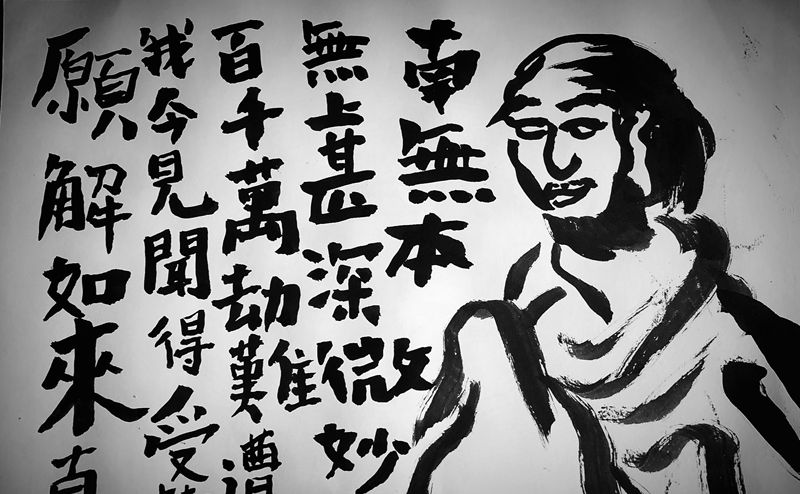 南無本
無上甚深微妙
百千萬劫難遭
我今見聞得受
願解如來